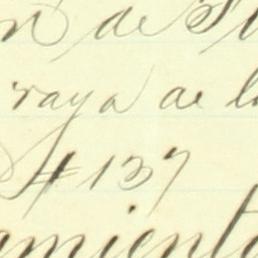 n de
raya de l
# 137
amiento